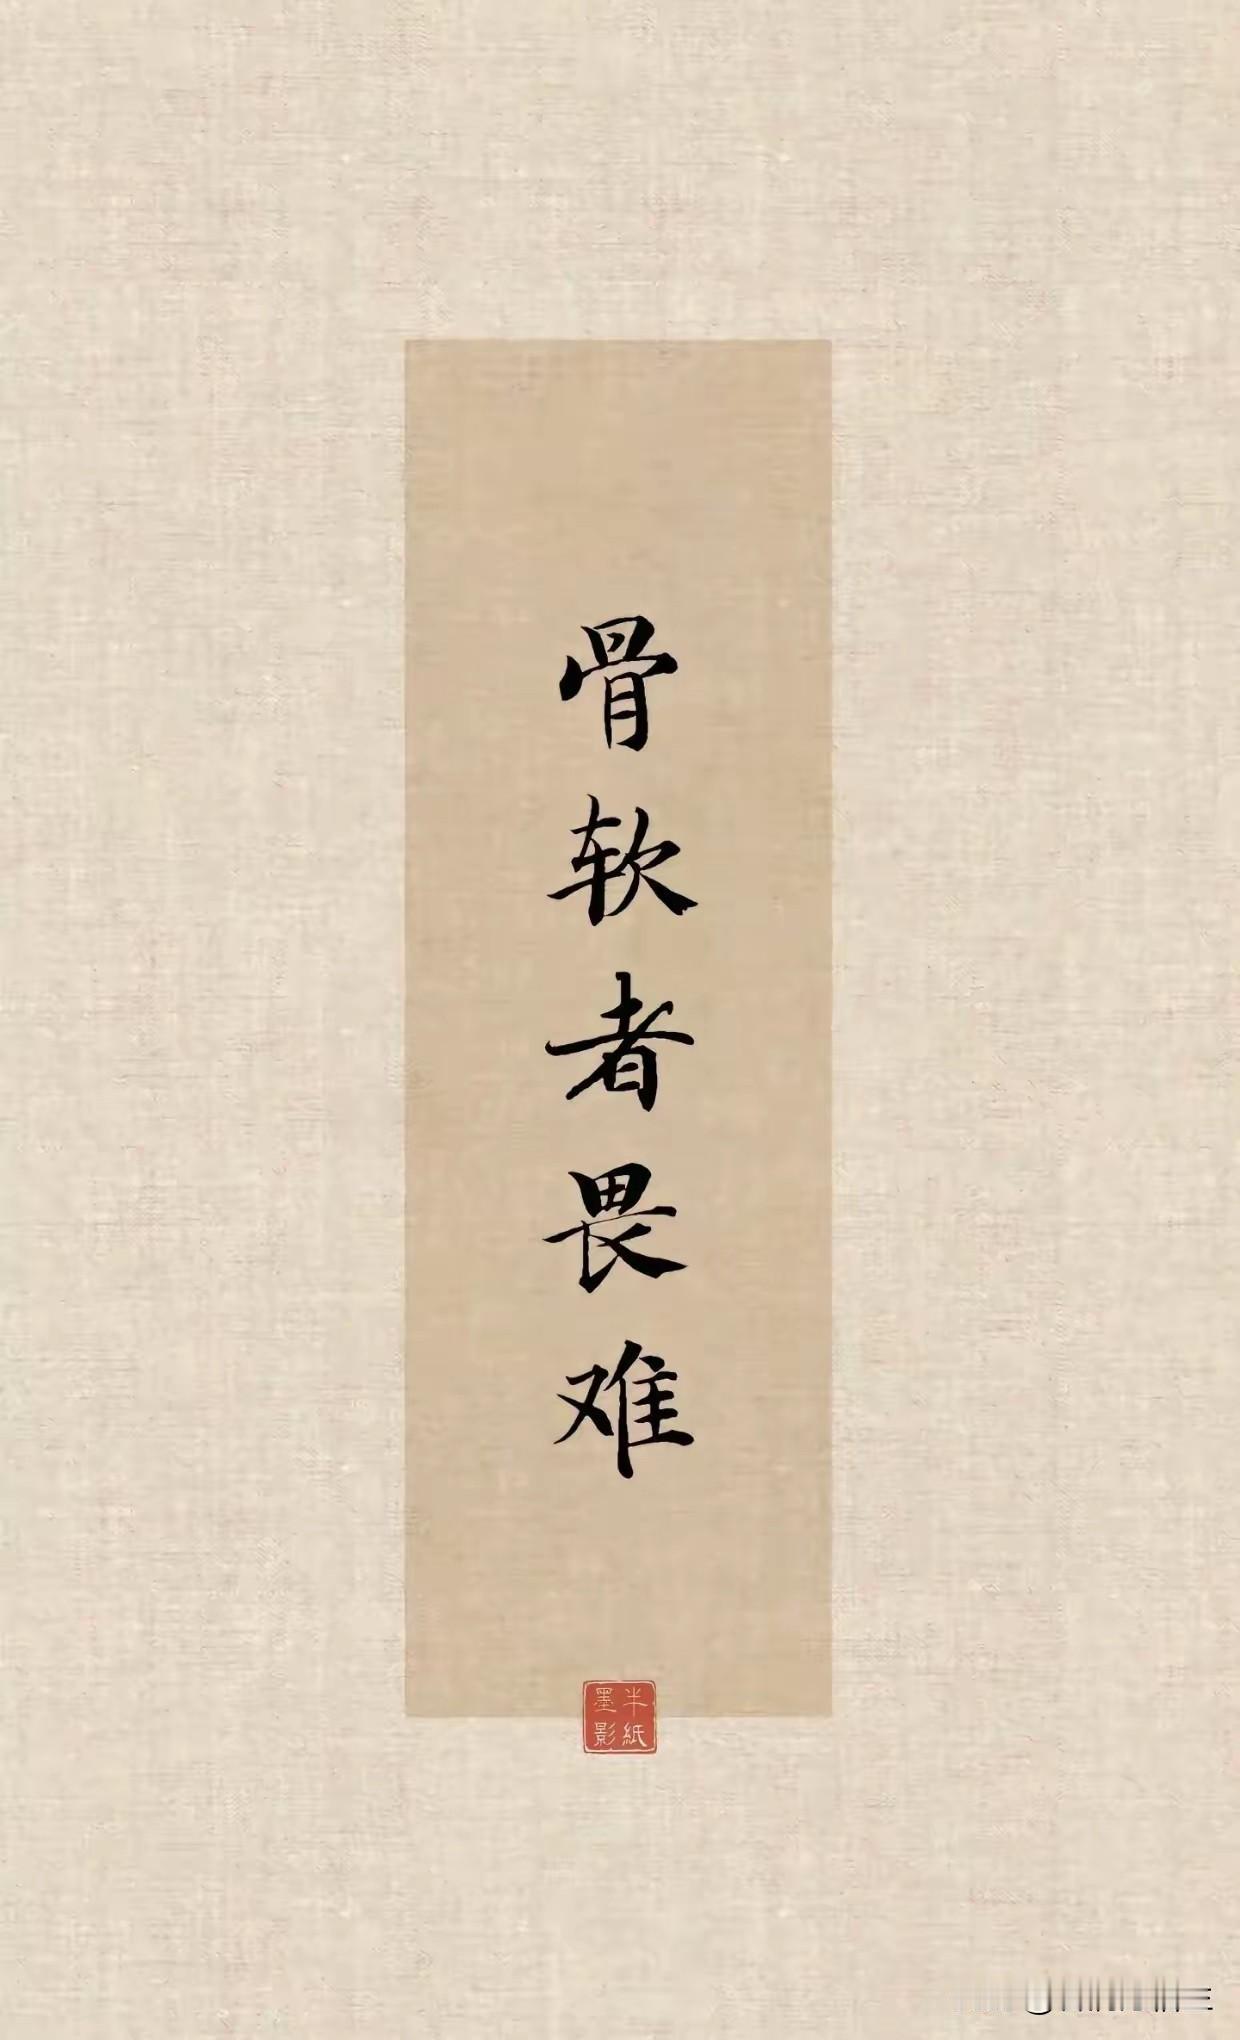 骨软者畏难
半紙
墨影